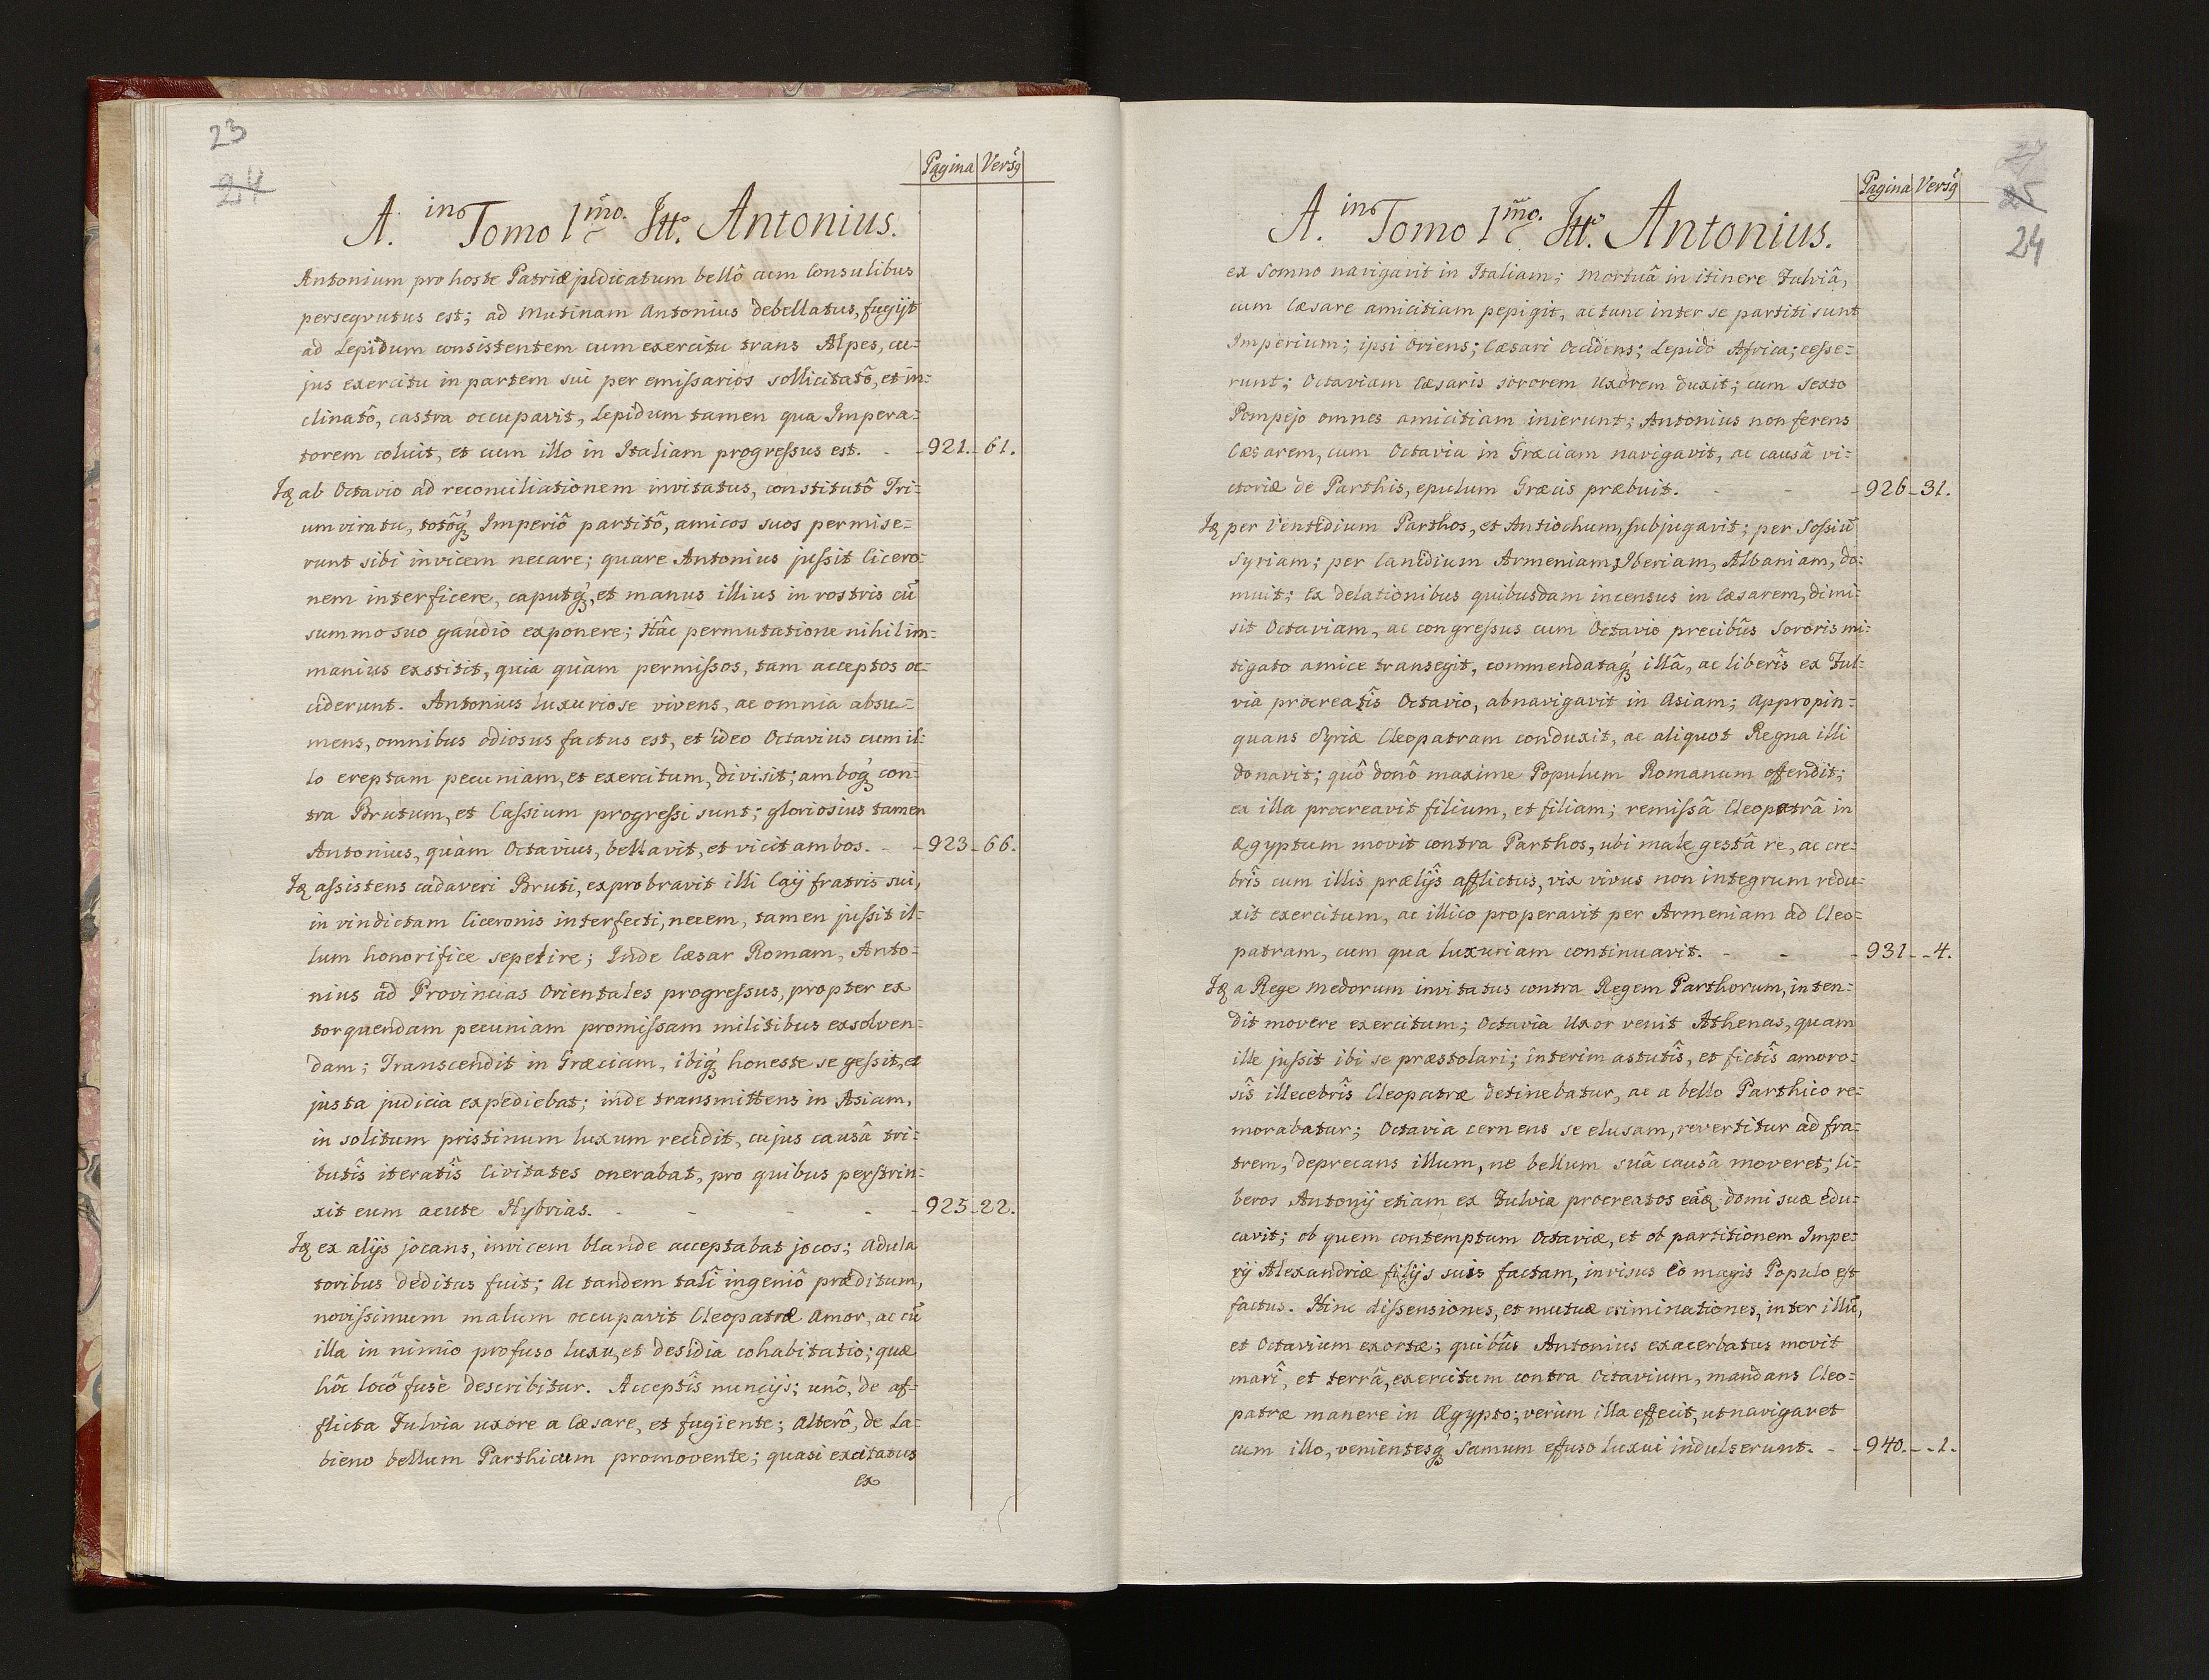 23
24
Pagina Versq̃
A. in Tomo 1mo. Itt. Antonius.
Antonium pro hoste Patriæ judicatum bellô cum Consulibus
persequutus est; ad Mutinam Antonius debellatus, fugijt
ad Lepidum consistentem cum exercitu trans Alpes, cu=
jus exercitu in partem sui per emissarios sollicitatô, et in=
clinatô, castra occupavit, Lepidum tamen qua Impera=
torem coluit, et cum illo in Italiam progressus est. - 921. 61.
Iq ab Octavio ad reconciliationem invitatus, constitutô Tri=
umviratu, totôq́ Imperiô partitô, amicos suos permise=
runt sibi invicem necare; quare Antonius jussit Cicero=
nem interficere, caputq́, et manus illius in rostris cũ
summo suo gaudio exponere; Hâc permutatione nihil im=
manius exstitit, quia quàm permissos, tam acceptos oc=
ciderunt. Antonius luxuriose vivens, ac omnia absu=
mens, omnibus odiosus factus est, et ideo Octavius cum il=
lo ereptam pecuniam, et exercitum, divisit; amboq́ con=
tra Brutum, et Cassium progressi sunt; gloriosius tamen
Antonius, quàm Octavius, bellavit, et vicit ambos. - 923 - 66.
Iq assistens cadaveri Bruti, exprobravit illi Caij fratris sui,
in vindictam Ciceronis interfecti, necem, tamen jussit il=
lum honorifice sepelire; Inde Cæsar Romam, Anto=
nius ad Provincias Orientales progressus, propter ex
torquendam pecuniam promissam militibus exsolven=
dam; Transcendit in Græciam, ibiq́ honeste se gessit, et
justa judicia expediebat; inde transmittens in Asiam,
in solitum pristinum luxum recidit, cujus causâ tri=
butîs iteratîs Civitates onerabat, pro quibus perstrin=
xit eum acute Hybrias. - - - - 925 - 22.
Iq ex alijs jocans, invicem blande acceptabat jocos; adula
toribus deditus fuit; Ac tandem talî ingeniô præditum,
novissimum malum occupavit Cleopatræ Amor, ac cũ
illa in nimio profuso luxu, et desidia cohabitatio; quæ
hôc locô fusè describitur. Acceptîs nuncijs; unô, de af=
flicta Fulvia uxore a Cæsare, et fugiente; Alterô, de La=
bieno bellum Parthicum promovente; quasi excitatus
ex
27
25
24
Pagina Versq̃
A. in Tomo 1mo. Itt. Antonius.
ex somno navigavit in Italiam; Mortuâ in itinere Fulviâ,
cum Cæsare amicitiam pepigit, ac tunc inter se partiti sunt
Imperium; ipsi Oriens; Cæsari Occidens; Lepido Africa; cesse=
runt; Octaviam Cæsaris sororem Uxorem duxit; cum Sexto
Pompejo omnes amicitiam inierunt; Antonius non ferens
Cæsarem, cum Octavia in Græciam navigavit, ac causâ vi=
ctoriæ de Parthis, epulum Græcis præbuit. - - - 926 - 31.
Iq per Ventidium Parthos, et Antiochum, subjugavit; per Sossiũ
Syriam; per Canidium Armeniam, Iberiam, Albaniam, do=
muit; Ex delationibus quibusdam incensus in Cæsarem, dimi=
sit Octaviam, ac congressus cum Octavio precibûs Sororis mi=
tigato amice transegit, commendataq́ illâ, ac liberîs ex Ful=
via procreatîs Octavio, abnavigavit in Asiam; Appropin=
quans Syriæ Cleopatram conduxit, ac aliquot Regna illi
donavit; quô donô maxime Populum Romanum offendit;
ex illa procreavit filium, et filiam; remissâ Cleopatrâ in
Ægyptum movit contra Parthos, ubi male gestâ re, ac cre=
brîs cum illis prælijs afflictus, vix vivus non integrum redu=
xit exercitum, ac illico properavit per Armeniam ad Cleo=
patram, cum qua luxuriam continuavit. - - - 931 - - 4.
Iq a Rege Medorum invitatus contra Regem Parthorum, inten=
dit movere exercitum; Octavia Uxor venit Athenas, quam
ille jussit ibi se præstolari; interim astutîs, et fictîs amoro=
sîs illecebrîs Cleopatræ detinebatur, ac a bello Parthico re=
morabatur; Octavia cernens se elusam, revertitur ad fra=
trem, deprecans illum, ne bellum suâ causâ moveret; li=
beros Antonij etiam ex Fulvia procreatos domi suæ edu=
cavit; ob quem contemptum Octaviæ, et ob partitionem Impe=
rij Alexandriæ filijs suis factam, invisus eò magis Populo est
factus. Hinc dissensiones, et mutuæ criminationes, inter illũ,
et Octavium exortæ; quibûs Antonius exacerbatus movit
marî, et terrâ, exercitum contra Octavium, mandans Cleo=
patræ manere in Ægypto; verùm illa effecit, ut navigaret
cum illo, venientesq́ Samum effuso luxui indulserunt. - - 940. - - 1.